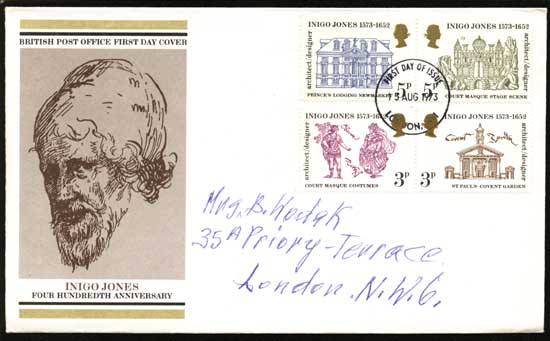 BRITISH POST OFFICE FIRST DAY COVER
INIGO JONES
FOUR HUNDREDTH ANNIVERSARY
INIGO JONES 1573-1652
architect/designer
5P
PRINCE'S LODGING NEWMARKET
INIGO JONES 1573-1652
architect/designer
5P
COURT MASQUE STAGE SCENE
FIRST DAY OF ISSUE
15 AUG 1973
INIGO JONES 1573-1652
architect/designer
3P
COURT MASQUE COSTUMES
INIGO JONES 1573-1652
architect/designer
Covent
3P
ST PAULS COVENT GARDEN
Mrs. B. Kodak
35A Priory-Terrace
London. N.W.6.